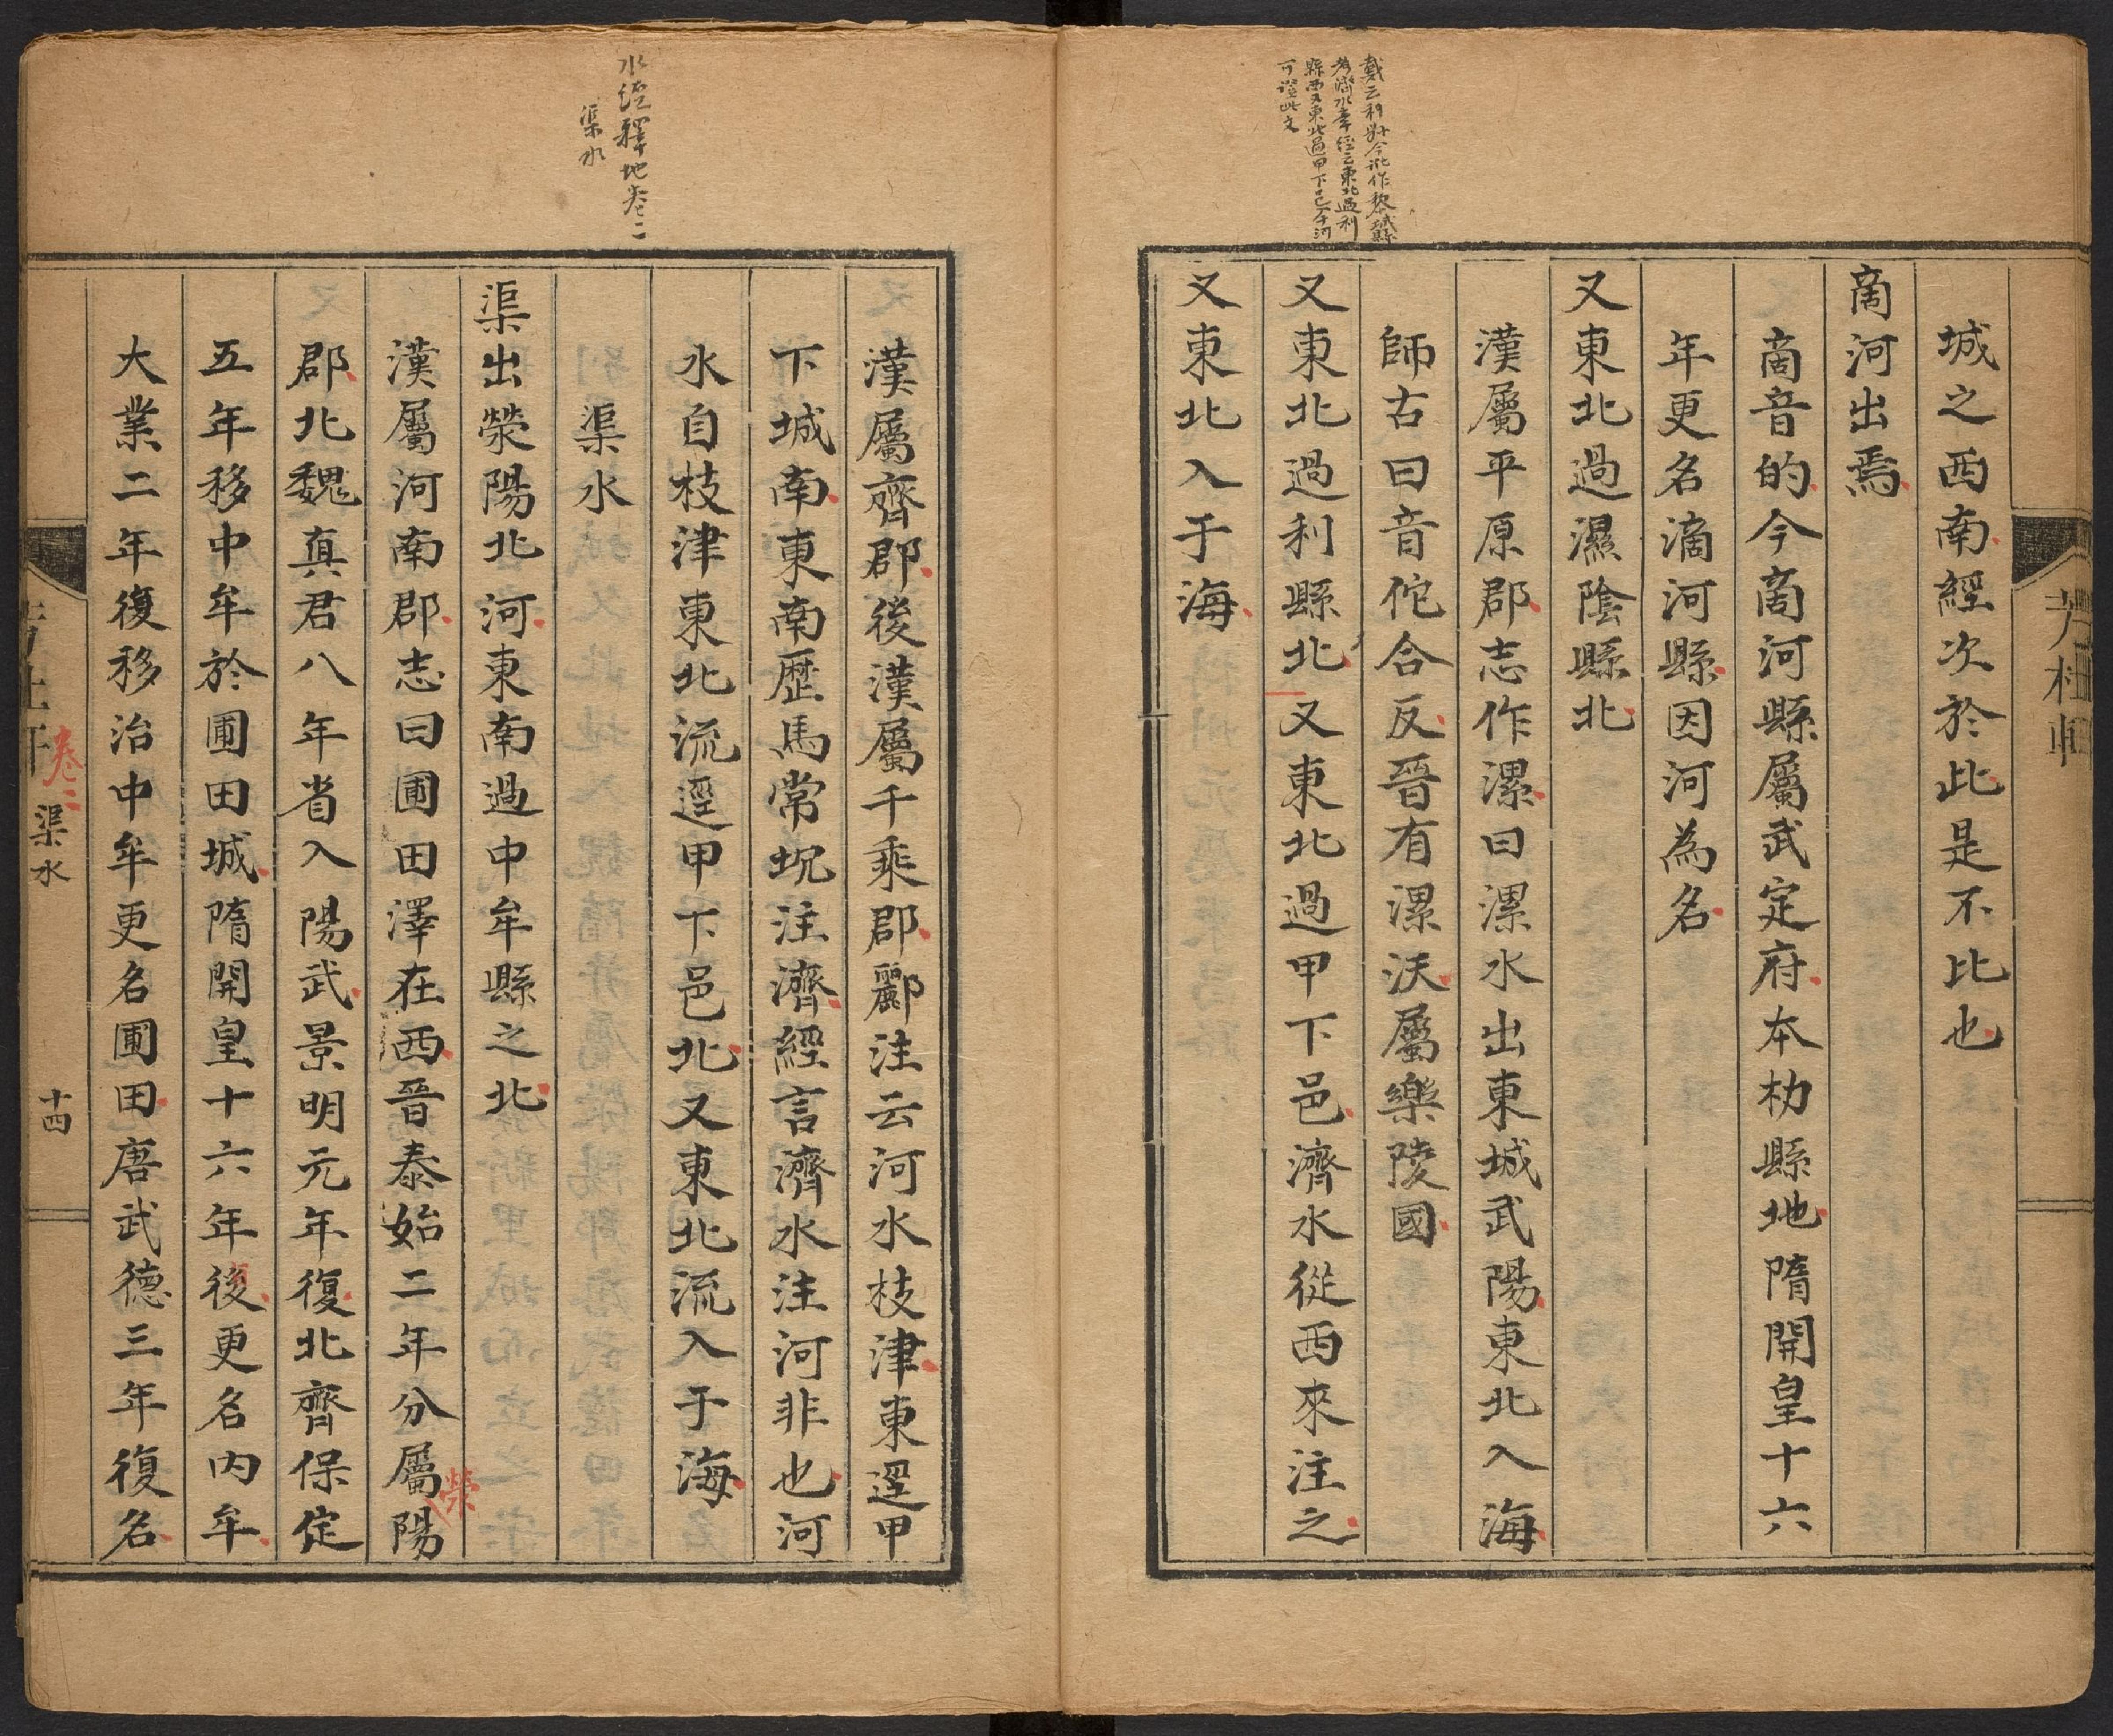 戴云利縣今訛作黎城縣
考濟水章經云東北過利
縣西又東北過甲下邑今河
可證此文
城之西南經次於此是不比也
啇河出焉
啇音的今啇河縣屬武定府本朸縣地隋開皇十六
年更名滴河縣因河為名
又東北過濕陰縣北
漢屬平原郡志作漯曰漯水出東城武陽東北入海
師古曰音佗合反晉有漯沃屬樂陵國
又東北過利縣北又東北過甲下邑濟水從西來注之
又東北入于海
水經釋地卷二
渠水
漢屬齊郡後漢屬千乘郡酈注云河水枝津東逕甲
下城南東南歷馬常坈注濟經言濟水注河非也河
水自枝津東北流逕甲下邑北又東北流入于海
渠水
渠出滎陽北河東南過中牟縣之北
漢屬河南郡志曰圃田澤在西晉泰始二年分屬滎陽
郡北魏真君八年省入陽武景明元年復北齊保定
五年移中牟於圃田城隋開皇十六年後更名內牟
大業二年復移治中牟更名圃田唐武德三年復名
卷二
渠水
十四